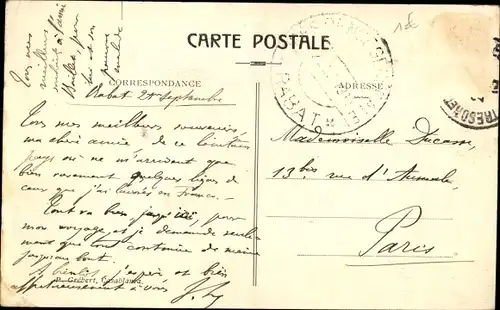 CARTE POSTALE
CORRESPONDANCE
ADRESSE
RABAT
TRESOR ET
Rabat 24 Septembre
Tous mes meilleurs souvenirs,
ma chère amie de ce lointain
pays où ne m'arrivent que
bien rarement quelques lignes de
ceux que j'ai laissés en France.
Tout va bien jusqu'ici, pour
mon voyage, et je demande seule-
ment que tout continue de même
jusqu'au bout.
A bientôt, j'espère et bien
affectueusement à vous
P. Grébert, Casablanca
Mademoiselle Ducasse
13 bis rue d'Aumale
Paris